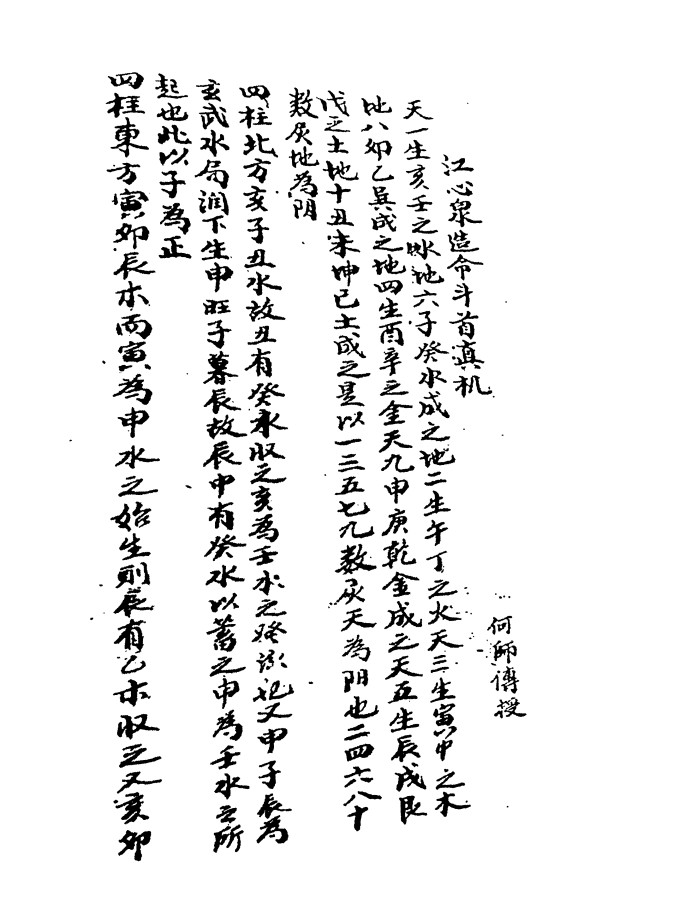 何師傳授
江心泉造命斗首真机
天一生亥壬之水地六子癸水成之地二生午丁之火天三生寅甲之木
地八卯乙巽成之地四生酉辛之金天九申庚乾金成之天五生辰戌艮
戊之土地十丑未坤己土成之是以一三五七九数属天為阴也二四六八十
数属地為阴
四柱北方亥子丑水故丑有癸水収之亥為壬水之又申子辰為
玄武水局润下生申旺子暮辰故辰中有癸水以蓄之申為壬水之所
起也此以子為正
四柱東方寅卯辰木而寅為申水之始生則辰有乙木収之又亥卯